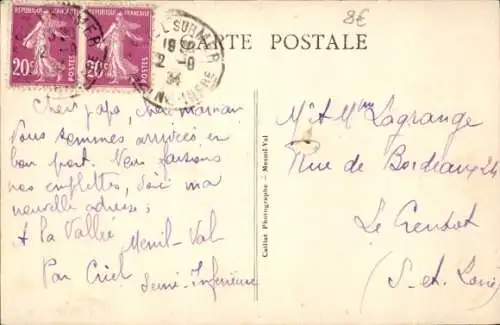 8€
REPUBLIQUE FRANÇAISE
REPUBLIQUE FRANÇAISE
20c
20c
CARTE POSTALE
Cher papa, chère maman
Nous sommes arrivées en
bon port. Nous faisons
nos emplettes, voici ma
nouvelle adresse :
A la Vallée
Mesnil-Val
Par Criel
Seine-Inférieure
Caillat Photographe - Mesnil-Val
Mr et Mme Lagrange
Rue de Bordeaux 24
Le Creusot
(S-et-Loire)